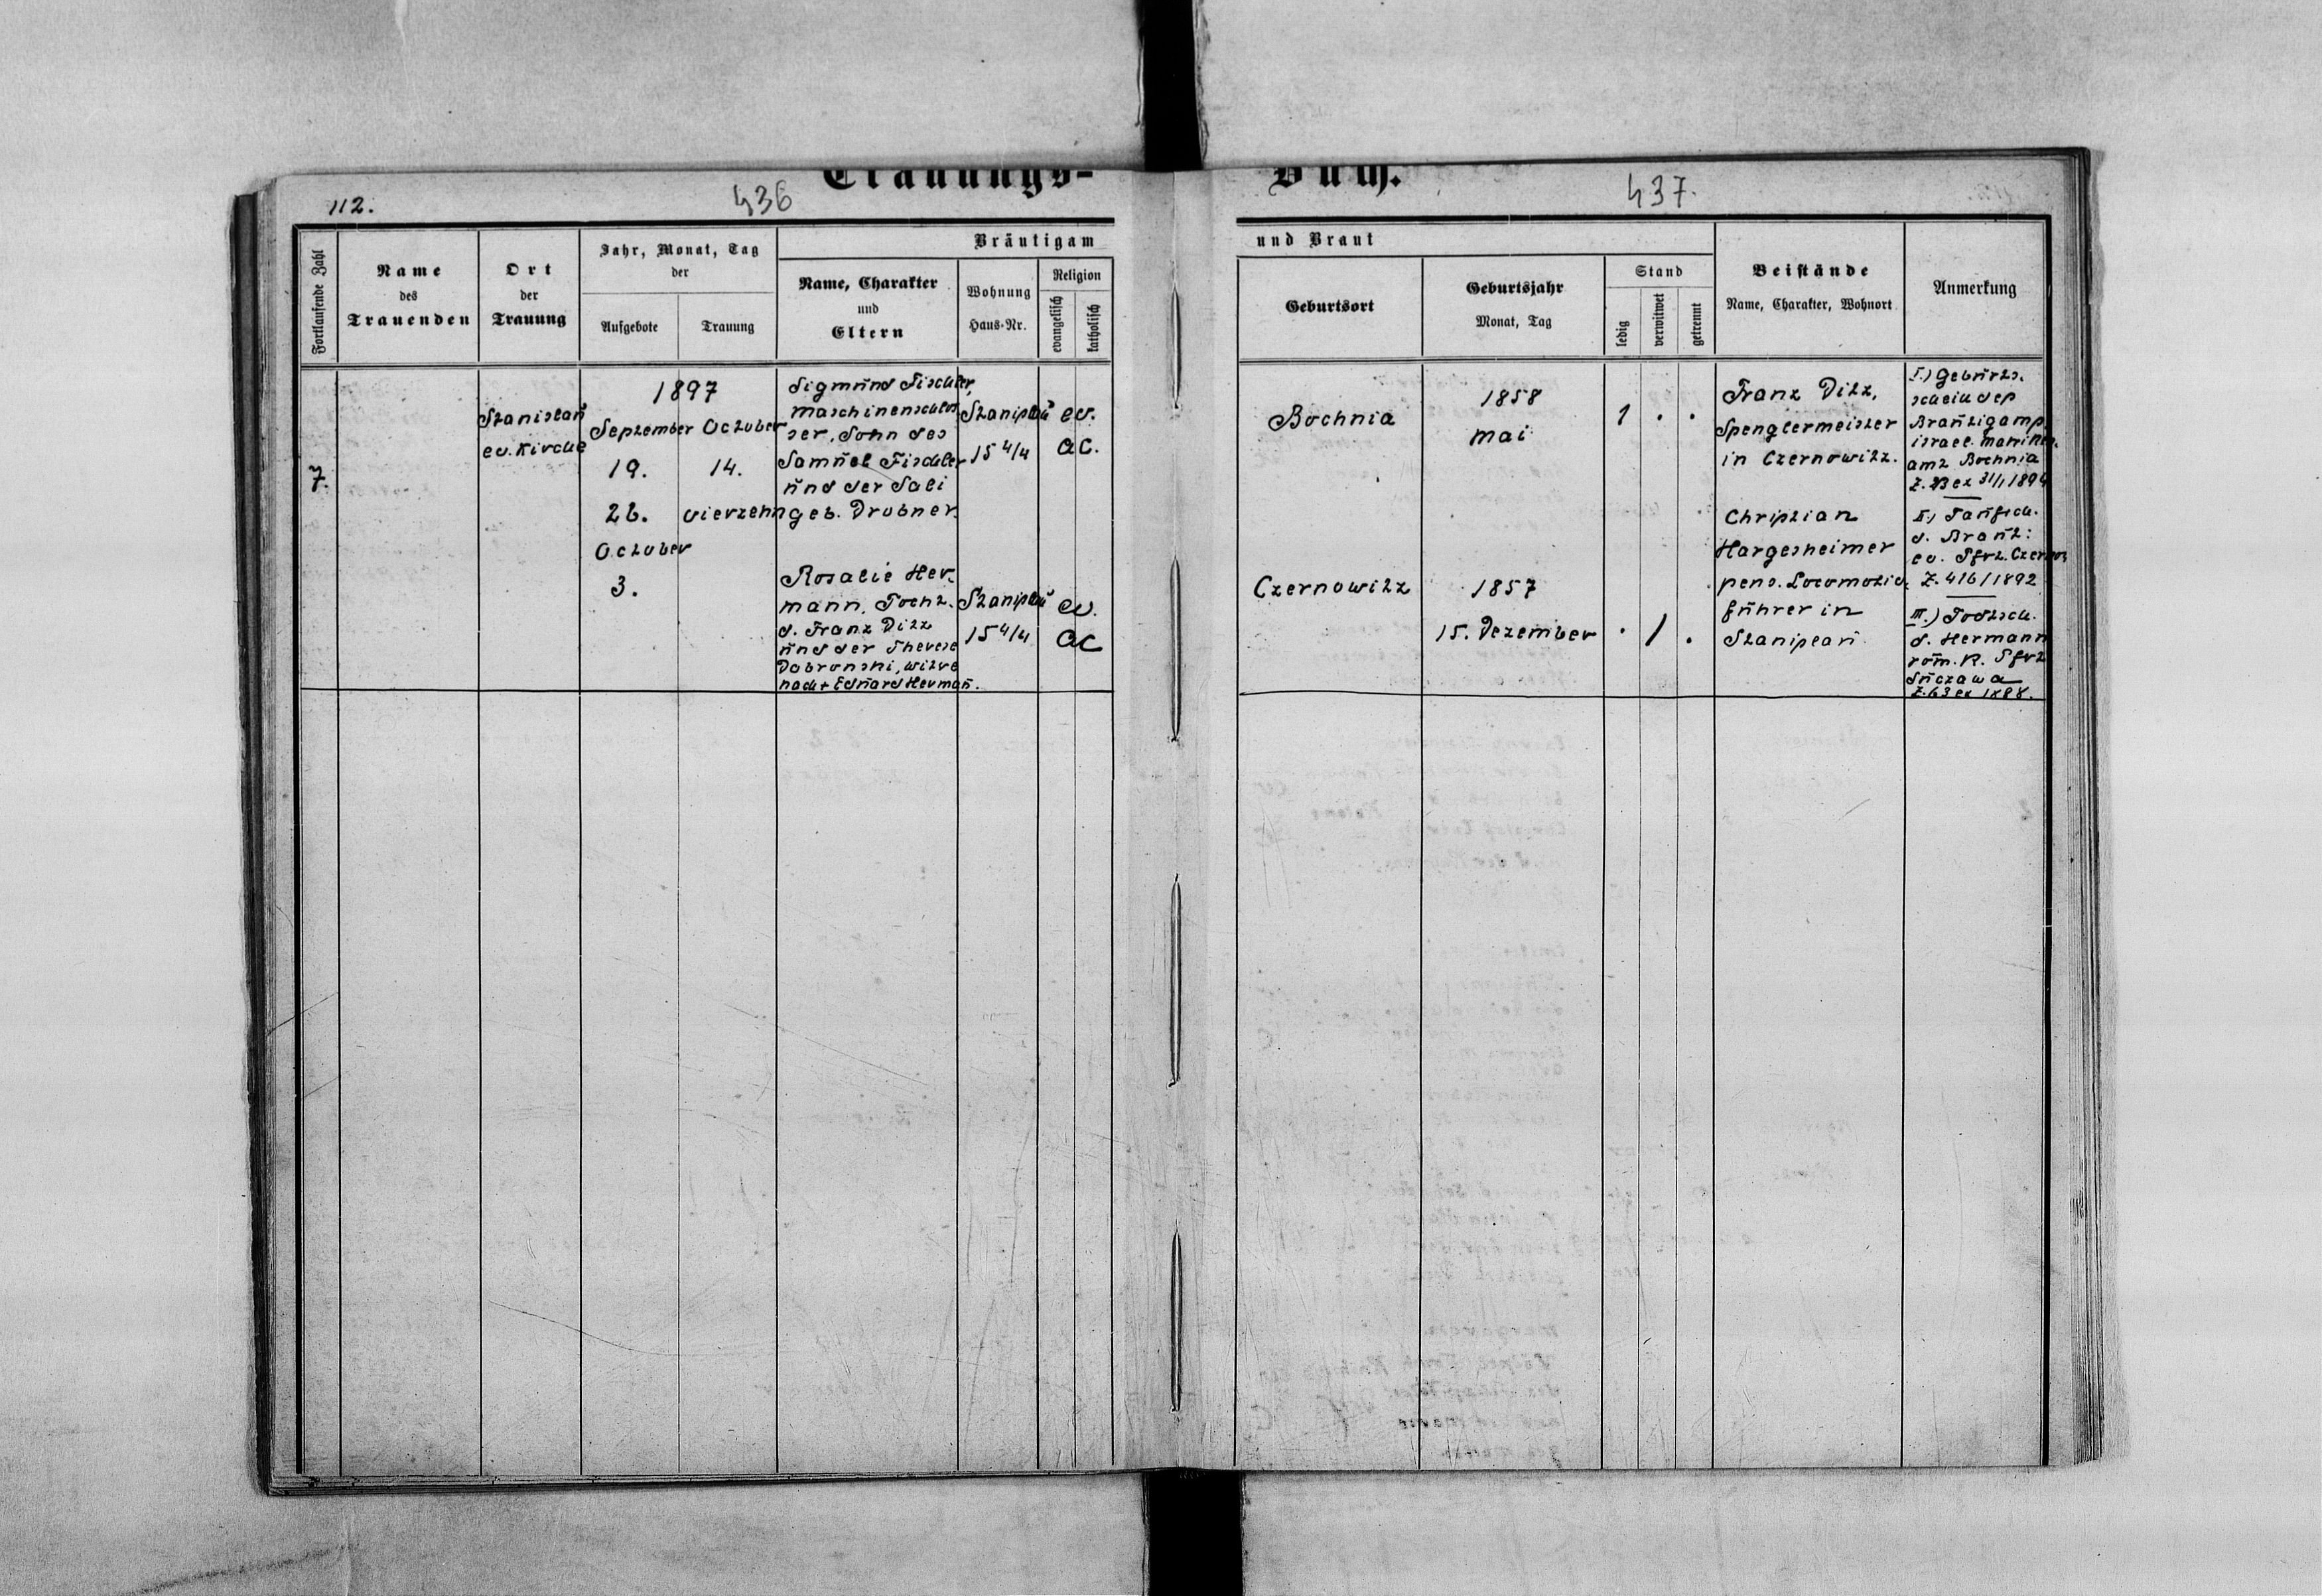 Trauungs-Buch.
112.
436
437.
Fortlaufende Zahl
Name
des
Trauenden
Ort
der
Trauung
Jahr, Monat, Tag
der
Aufgebote
Trauung
Bräutigam
und Braut
Name, Charakter
und
Eltern
Wohnung
Haus-Nr.
Religion
evangelisch
katholisch
Geburtsort
Geburtsjahr
Monat, Tag
Stand
ledig
verwitwet
getrennt
Beistände
Name, Charakter, Wohnort
Anmerkung
7.
Stanislau
ev. Kirche
1897
September
19.
26.
October
3.
October
14.
vierzehn
Sigmund Fischler,
Maschinenschlos
ser, Sohn des
Samuel Fischler
und der Sali
geb. Drobner.
Stanislau
15 4/4
ev.
AC.
Bochnia
1858
Mai
1
.
.
Franz Ditz,
Spenglermeister
in Czernowitz.
I.) Geburts.
schein des
Bräutigams,
israel. Matriken.
amt Bochnia
Z. 23 ex 31/1 1894
Rosalie Her-
mann, Tocht.
d. Franz Ditz
und der Therese
Dobronski, Witwe
nach + Eduard Herman̄.
Stanislau
15 4/4
ev.
AC
Czernowitz
1857
15. Dezember
.
1
.
Christian
Hargesheimer
pens. Locomotiv.
führer in
Stanislau
II.) Taufsch.
d. Braut:
ev. Pfrt. Czernow
Z. 416/1892
III.) Todtsch.
d. Hermann
röm. K. Pfrt
Suczawa
Z. 63 ex 1888.